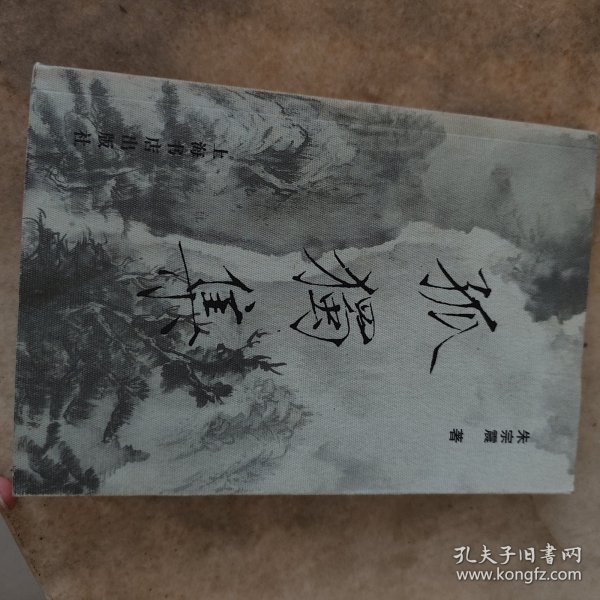 孤獨集
朱宗震 著
上海书店出版社
孔夫子旧书网
www.kongfz.com